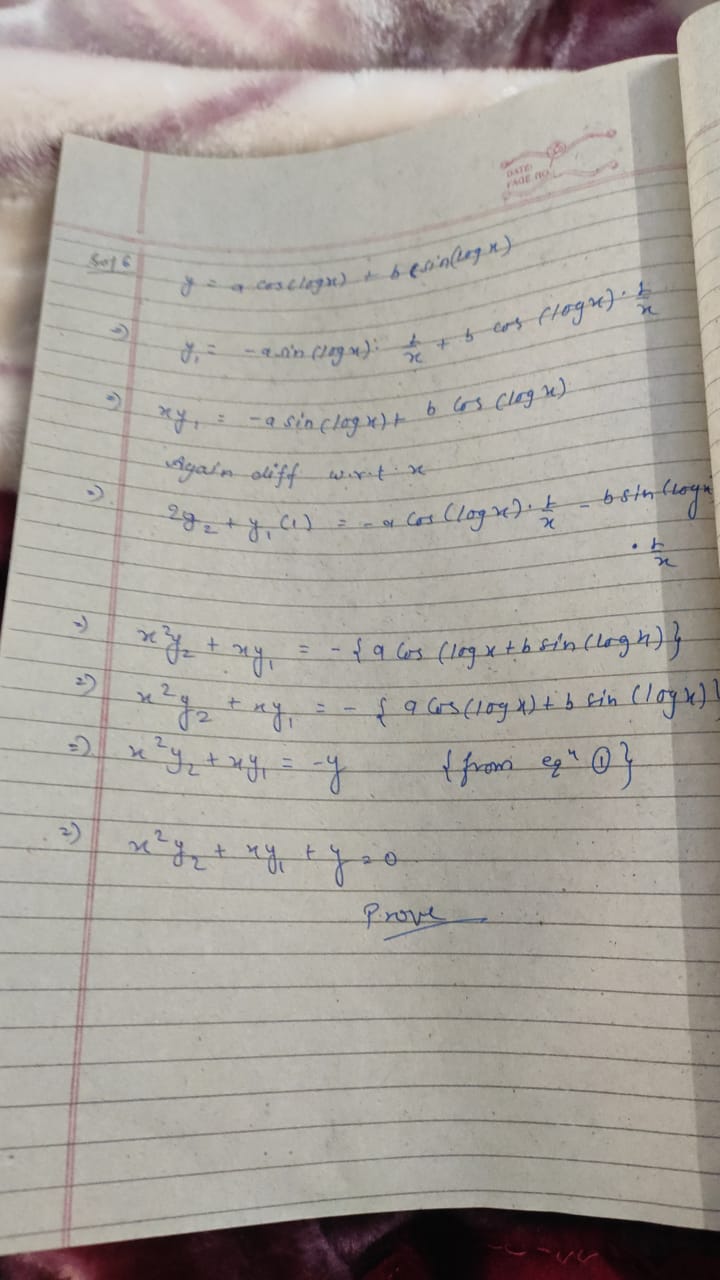 DATE:
PAGE NO.
Sol 6
y = a cos(logx) + b sin(log x)
=) y₁ = -a sin(logx). 1/x + b cos (logx). 1/x
=) xy₁ = -a sin(logx)+ b cos (logx)
Again diff w.r.t. x
=) 2y₂ + y₁(1) = -a cos(logx). 1/x - b sin(logx
. 1/x
=) x²y₂ + xy₁ = -{a cos (logx+b sin(logx)}
=) x²y₂ + xy₁ = -{a cos(logx)+b sin(logx)}
=) x²y₂ + xy₁ = -y {from eqⁿ ①}
=) x²y₂ + xy₁ + y = 0
Prove